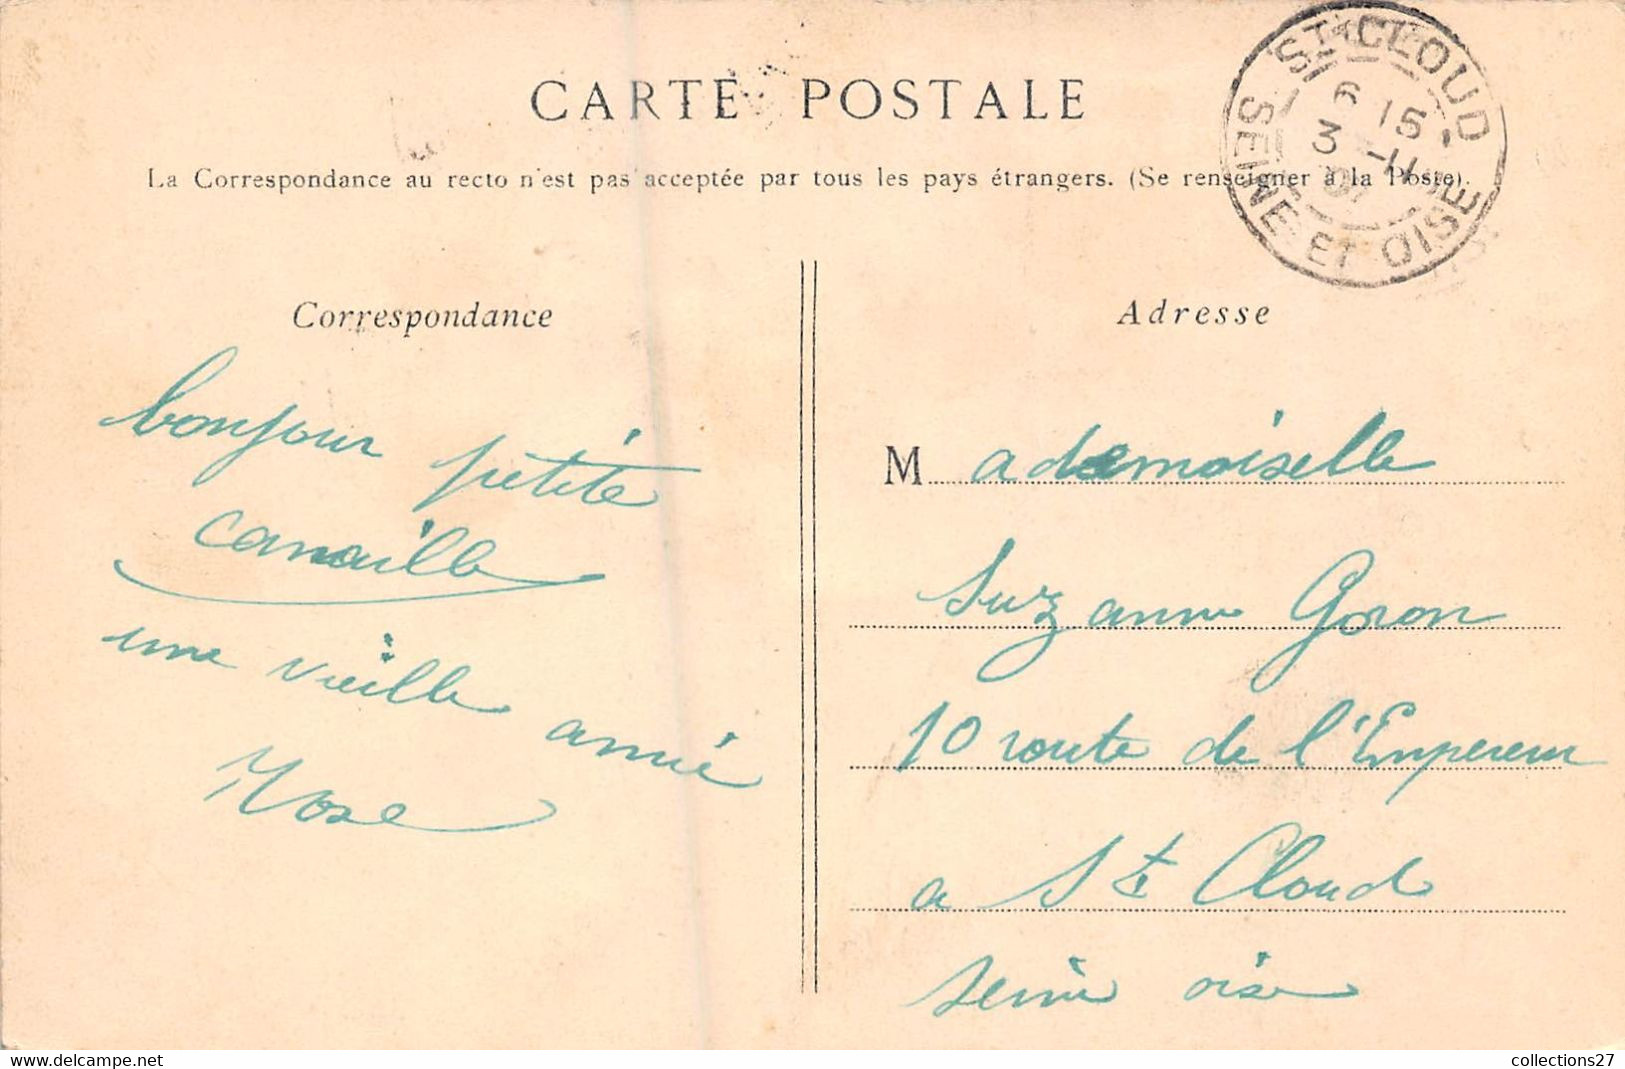 CARTE POSTALE
La Correspondance au recto n'est pas acceptée par tous les pays étrangers. (Se renseigner à la Poste).
ST CLOUD
6 15
3 -11
07
SEINE ET OISE
Correspondance
bonjour petite
canaille
une vieille amie
Rose
Adresse
Mademoiselle
Suzanne Goron
10 route de l'Empereur
a St Cloud
seine oise
delcampe.net
collections27